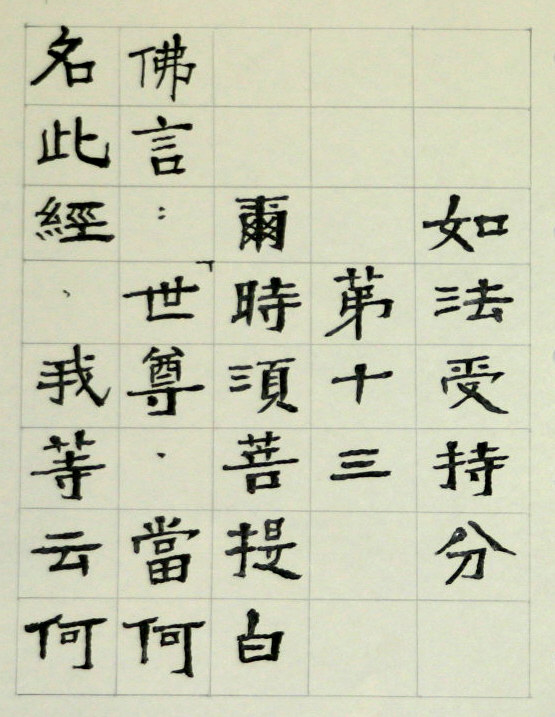 如法受持分
第十三
爾時須菩提白
佛言：「世尊，當何
名此經，我等云何